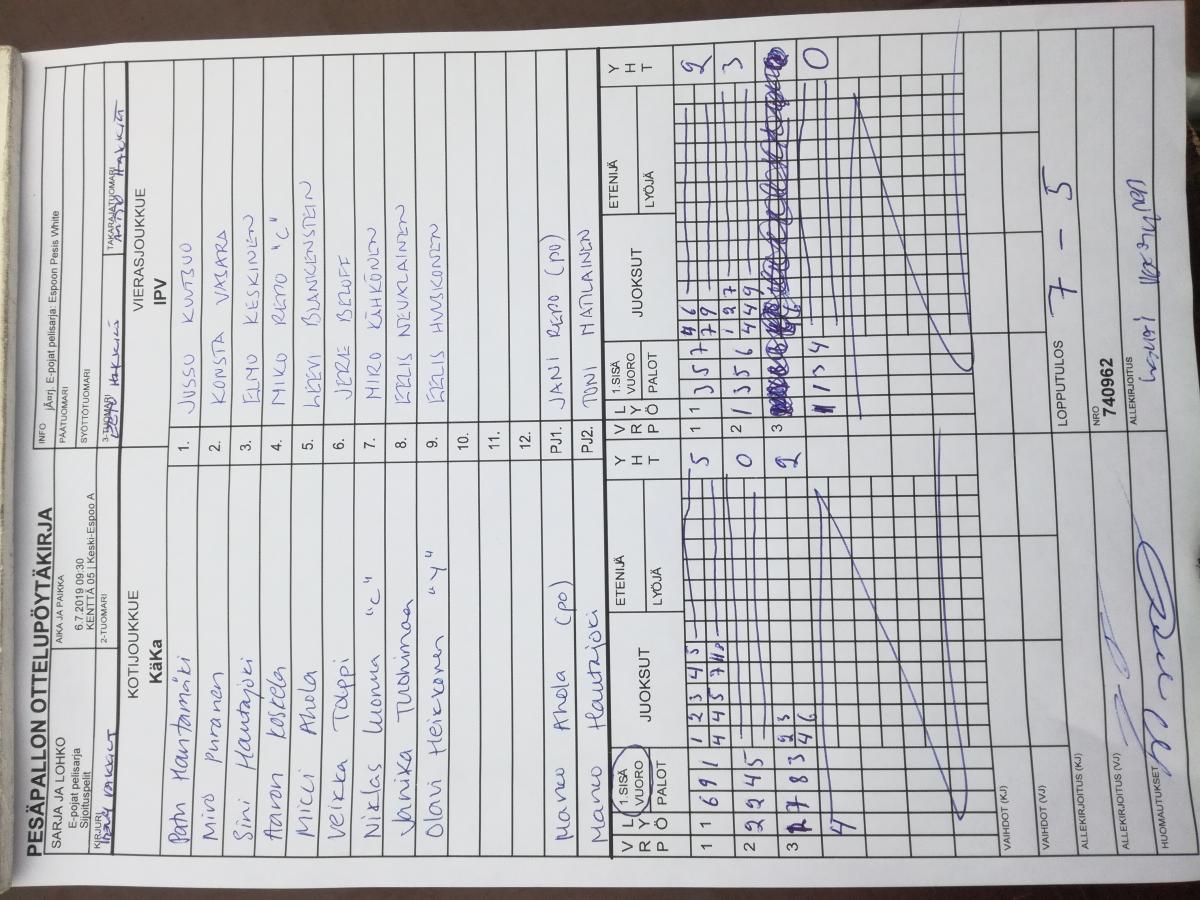 PESÄPALLON OTTELUPÖYTÄKIRJA
SARJA JA LOHKO
E-pojat pelisarja
Sijoituspelit
AIKA JA PAIKKA
6.7.2019 09:30
KENTTÄ 05 | Keski-Espoo A
INFO jÄ¤rj. E-pojat pelisarja: Espoon Pesis White
PÄÄTUOMARI
SYÖTTÖTUOMARI
KIRJURI
2-TUOMARI
3-TUOMARI
TAKARAJATUOMARI
KOTIJOUKKUE
KäKa
VIERASJOUKKUE
IPV
Hautamäki 1. JUSSU
Miro Puranen 2. KONSTA VASARA
Sini Hautajoki 3. ELMO KESKINEN
Aaron Koskela 4. MIKO REPO "C"
Micci Ahola 5. LEEVI BLANKENSTEIN
Veikka Talppi 6. JERE
Niklas Luoma "C" 7. MIRO KÄHKÖNEN
Janika Tuohimaa 8. EELIS NEUVALAINEN
Olavi Heikkonen "Y" 9. EELIS HUUSKONEN
10.
11.
12.
Marko Ahola (PO) PJ1. JANI REPO (PO)
Marko Hautajoki PJ2. TONI MATILAINEN
V R P L Y Ö 1.SISÄ VUORO PALOT JUOKSUT ETENIJÄ LYÖJÄ Y H T V R P L Y Ö 1.SISÄ VUORO PALOT JUOKSUT ETENIJÄ LYÖJÄ Y H T
1 1 6 9 1 1 2 3 4 5 5 1 1 3 5 7 4 6 2
4 4 5 7 11 7 9
2 2 2 4 5 0 2 1 3 5 6 1 2 7 3
4 4 9
3 7 8 3 2 3 2 3
4 6
4 1 3 4 0
VAIHDOT (KJ)
VAIHDOT (VJ)
LOPPUTULOS 7 - 5
ALLEKIRJOITUS (KJ)
NRO
740962
ALLEKIRJOITUS (VJ)
ALLEKIRJOITUS
HUOMAUTUKSET